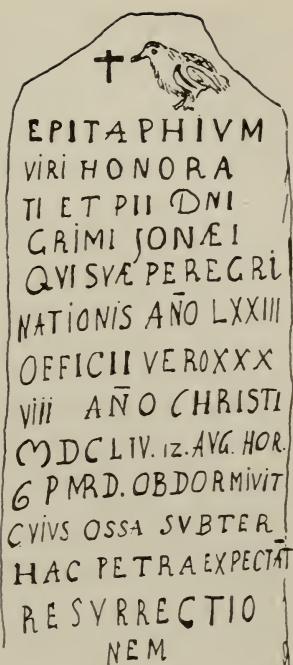 EPITAPHIVM
VIRI HONORA
TI ET PII DNI
GRIMI JONÆ I
QVI SVÆ PEREGRI
NATIONIS AN̄O LXXIII
OFFICII VERO XXX
VIII AN̄O CHRISTI
MDCLIV. 12. AVG. HOR.
6 P MRD. OBDORMIVIT
CVIVS OSSA SVBTER
HAC PETRA EXPECTĀT
RESVRRECTIO
NEM